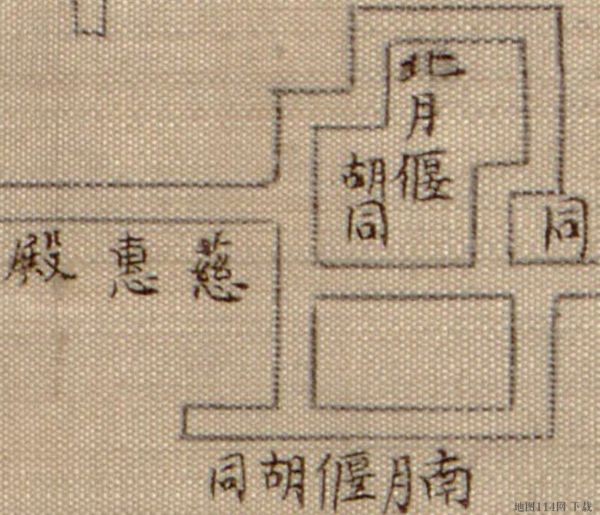 北月偃
胡同
同
慈惠殿
南月偃胡同
地图114网 下载